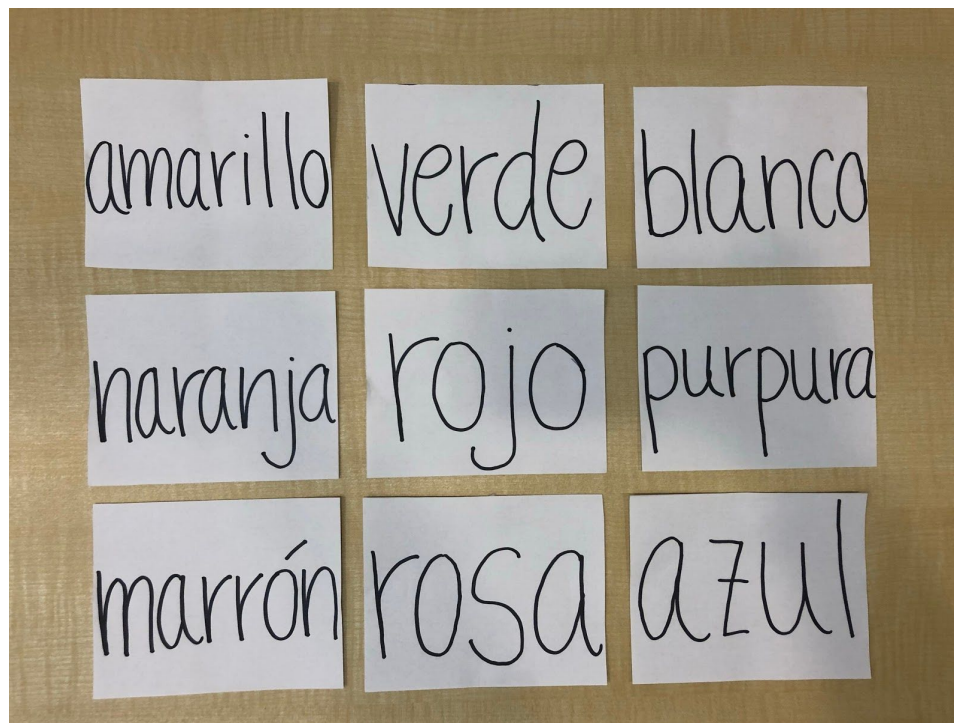 amarillo verde blanco
naranja rojo purpura
marrón rosa azul